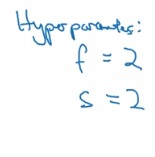 Hyperparameters:
f = 2
s = 2